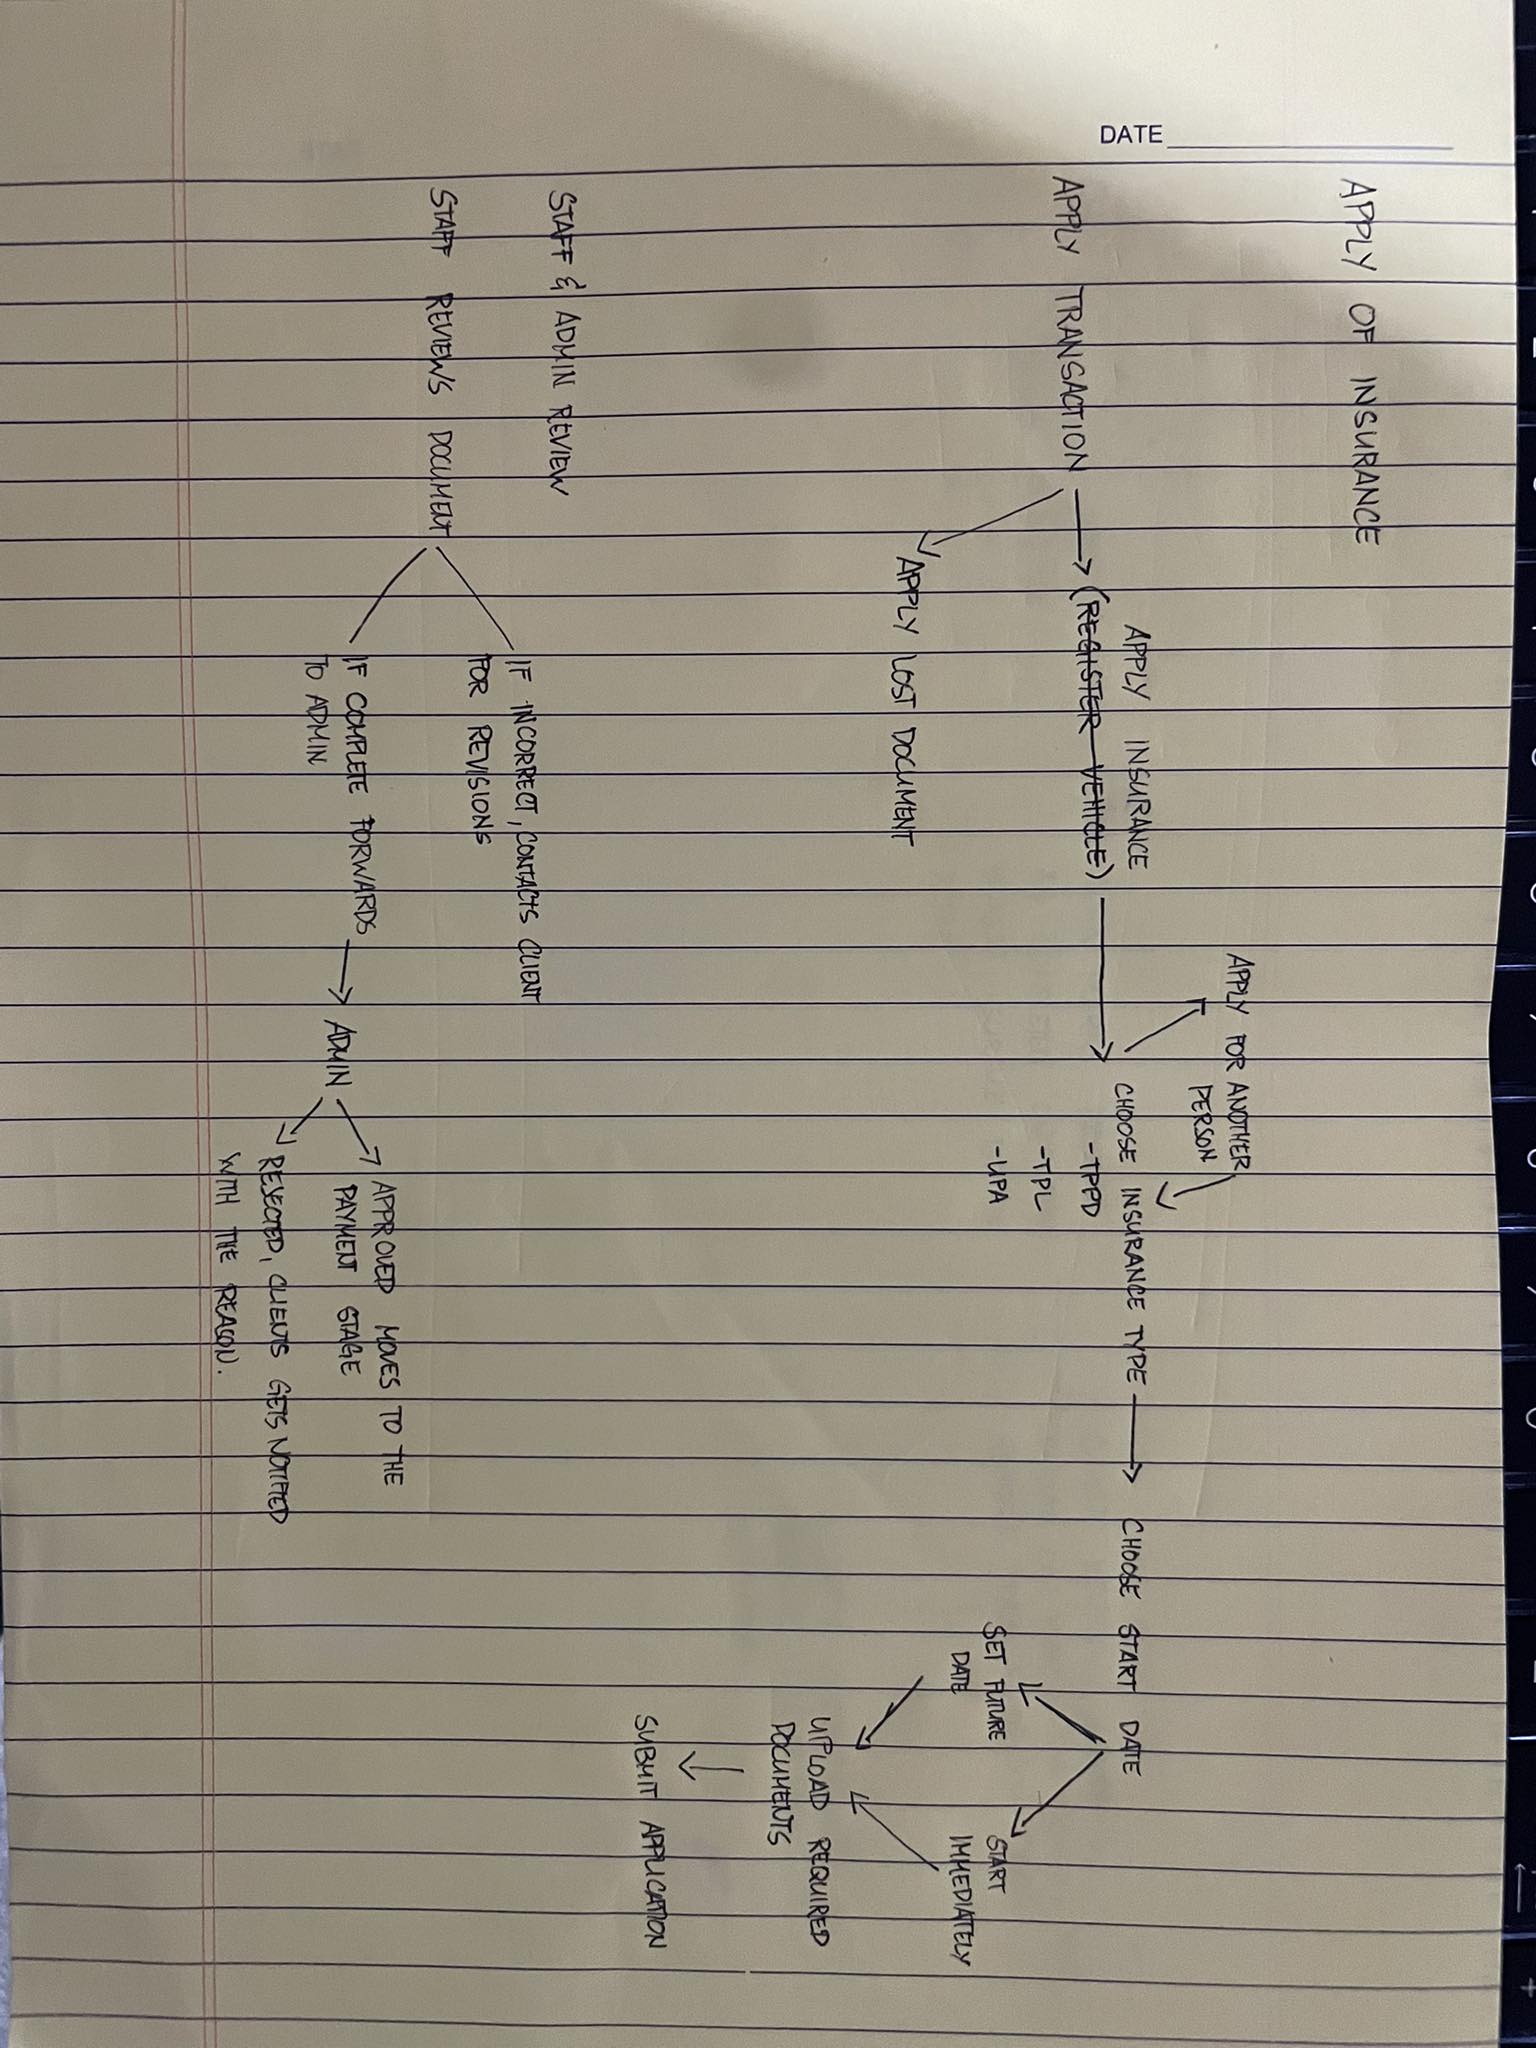 DATE
APPLY OF INSURANCE
APPLY FOR ANOTHER
PERSON
APPLY TRANSACTION
APPLY INSURANCE
(REGISTER VEHICLE)
CHOOSE INSURANCE TYPE
-TPPD
-TPL
-UPA
CHOOSE START DATE
SET FUTURE
DATE
START
IMMEDIATELY
APPLY LOST DOCUMENT
UPLOAD REQUIRED
DOCUMENTS
SUBMIT APPLICATION
STAFF & ADMIN REVIEW
STAFF REVIEWS DOCUMENT
IF INCORRECT, CONTACTS CLIENT
FOR REVISIONS
IF COMPLETE FORWARDS
TO ADMIN
ADMIN
APPROVED MOVES TO THE
PAYMENT STAGE
REJECTED, CLIENTS GETS NOTIFIED
WITH THE REASON.